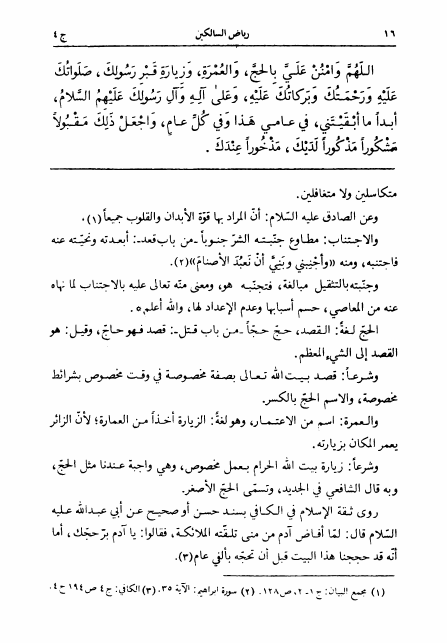 ١٦ رياض السالكين ج٤
اللّهُمَّ وَامْنُنْ عَلَيَّ بِالحَجِّ، وَالعُمْرَةِ، وَزِيارَةِ قَبْرِ رَسُولِكَ، صَلَواتُكَ
عَلَيْهِ وَرَحْمَتُكَ وَبَرَكاتُكَ عَلَيْهِ، وَعَلى آلِهِ وَآلِ رَسُولِكَ عَلَيْهِمُ السَّلامُ،
أبَداً ما أبْقَيْتَني، في عامي هَذا وَفي كُلِّ عامٍ، وَاجْعَلْ ذلِكَ مَقْبُولاً
مَشْكُوراً مَذْكُوراً لَدَيْكَ، مَذْخُوراً عِنْدَكَ.
متكاسلين ولا متغافلين.
وعن الصادق عليه السلام: أنّ المراد بها قوّة الأبدان والقلوب جميعاً(١).
والاجتناب: مطاوع جنّبته الشرّ جنوباً ـ من باب قعد ـ: أبعدته ونحّيته عنه
فاجتنبه، ومنه «وأجْنِبْني وبَنيَّ أنْ نَعبُدَ الأصنامَ»(٢).
وجنّبته بالتثقيل مبالغة، فتجنّبه هو، ومعنى منّه تعالى عليه بالاجتناب لما نهاه
عنه من المعاصي، حسم أسبابها وعدم الإعداد لها، والله أعلم٥.
الحجّ لغةً: القصد، حجّ حجّاً ـ من باب قتل ـ: قصد فهو حاجّ، وقيل: هو
القصد إلى الشيء المعظم.
وشرعاً: قصد بيت الله تعالى بصفة مخصوصة في وقت مخصوص بشرائط
مخصوصة، والاسم الحجّ بالكسر.
والعمرة: اسم من الاعتمار، وهو لغةً: الزيارة أخذاً من العمارة؛ لأنّ الزائر
يعمر المكان بزيارته.
وشرعاً: زيارة بيت الله الحرام بعمل مخصوص، وهي واجبة عندنا مثل الحجّ،
وبه قال الشافعي في الجديد، وتسمّى الحجّ الأصغر.
روى ثقة الإسلام في الكافي بسند حسن أو صحيح عن أبي عبدالله عليه
السلام قال: لمّا أفاض آدم من منى تلقّته الملائكة، فقالوا: يا آدم برّ حجك، أما
أنّه قد حججنا هذا البيت قبل أن تحجّه بألفي عام(٣).
(١) مجمع البيان: ج ١ـ٢، ص ١٢٨. (٢) سورة ابراهيم: الآية ٣٥. (٣) الكافي: ج ٤ ص ١٩٤ ح ٤.